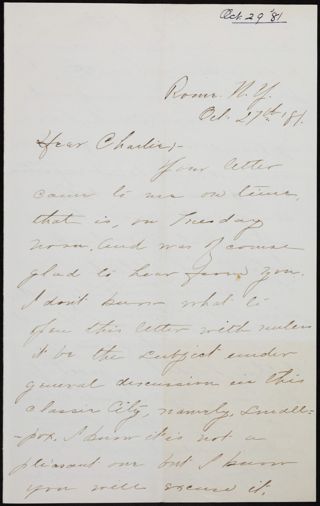 Oct. 29 '81
Rome. N. Y.
Oct. 27th 181.
Dear Charlie;-
Your letter
came to me on time,
that is, on Tuesday
noon. And was of course
glad to hear from you.
I don't know what to
fill this letter with unless
it be the subject under
general discussion in this
classic City, namely, small=
-pox. I know it is not a
pleasant one but I know
you will excuse it.